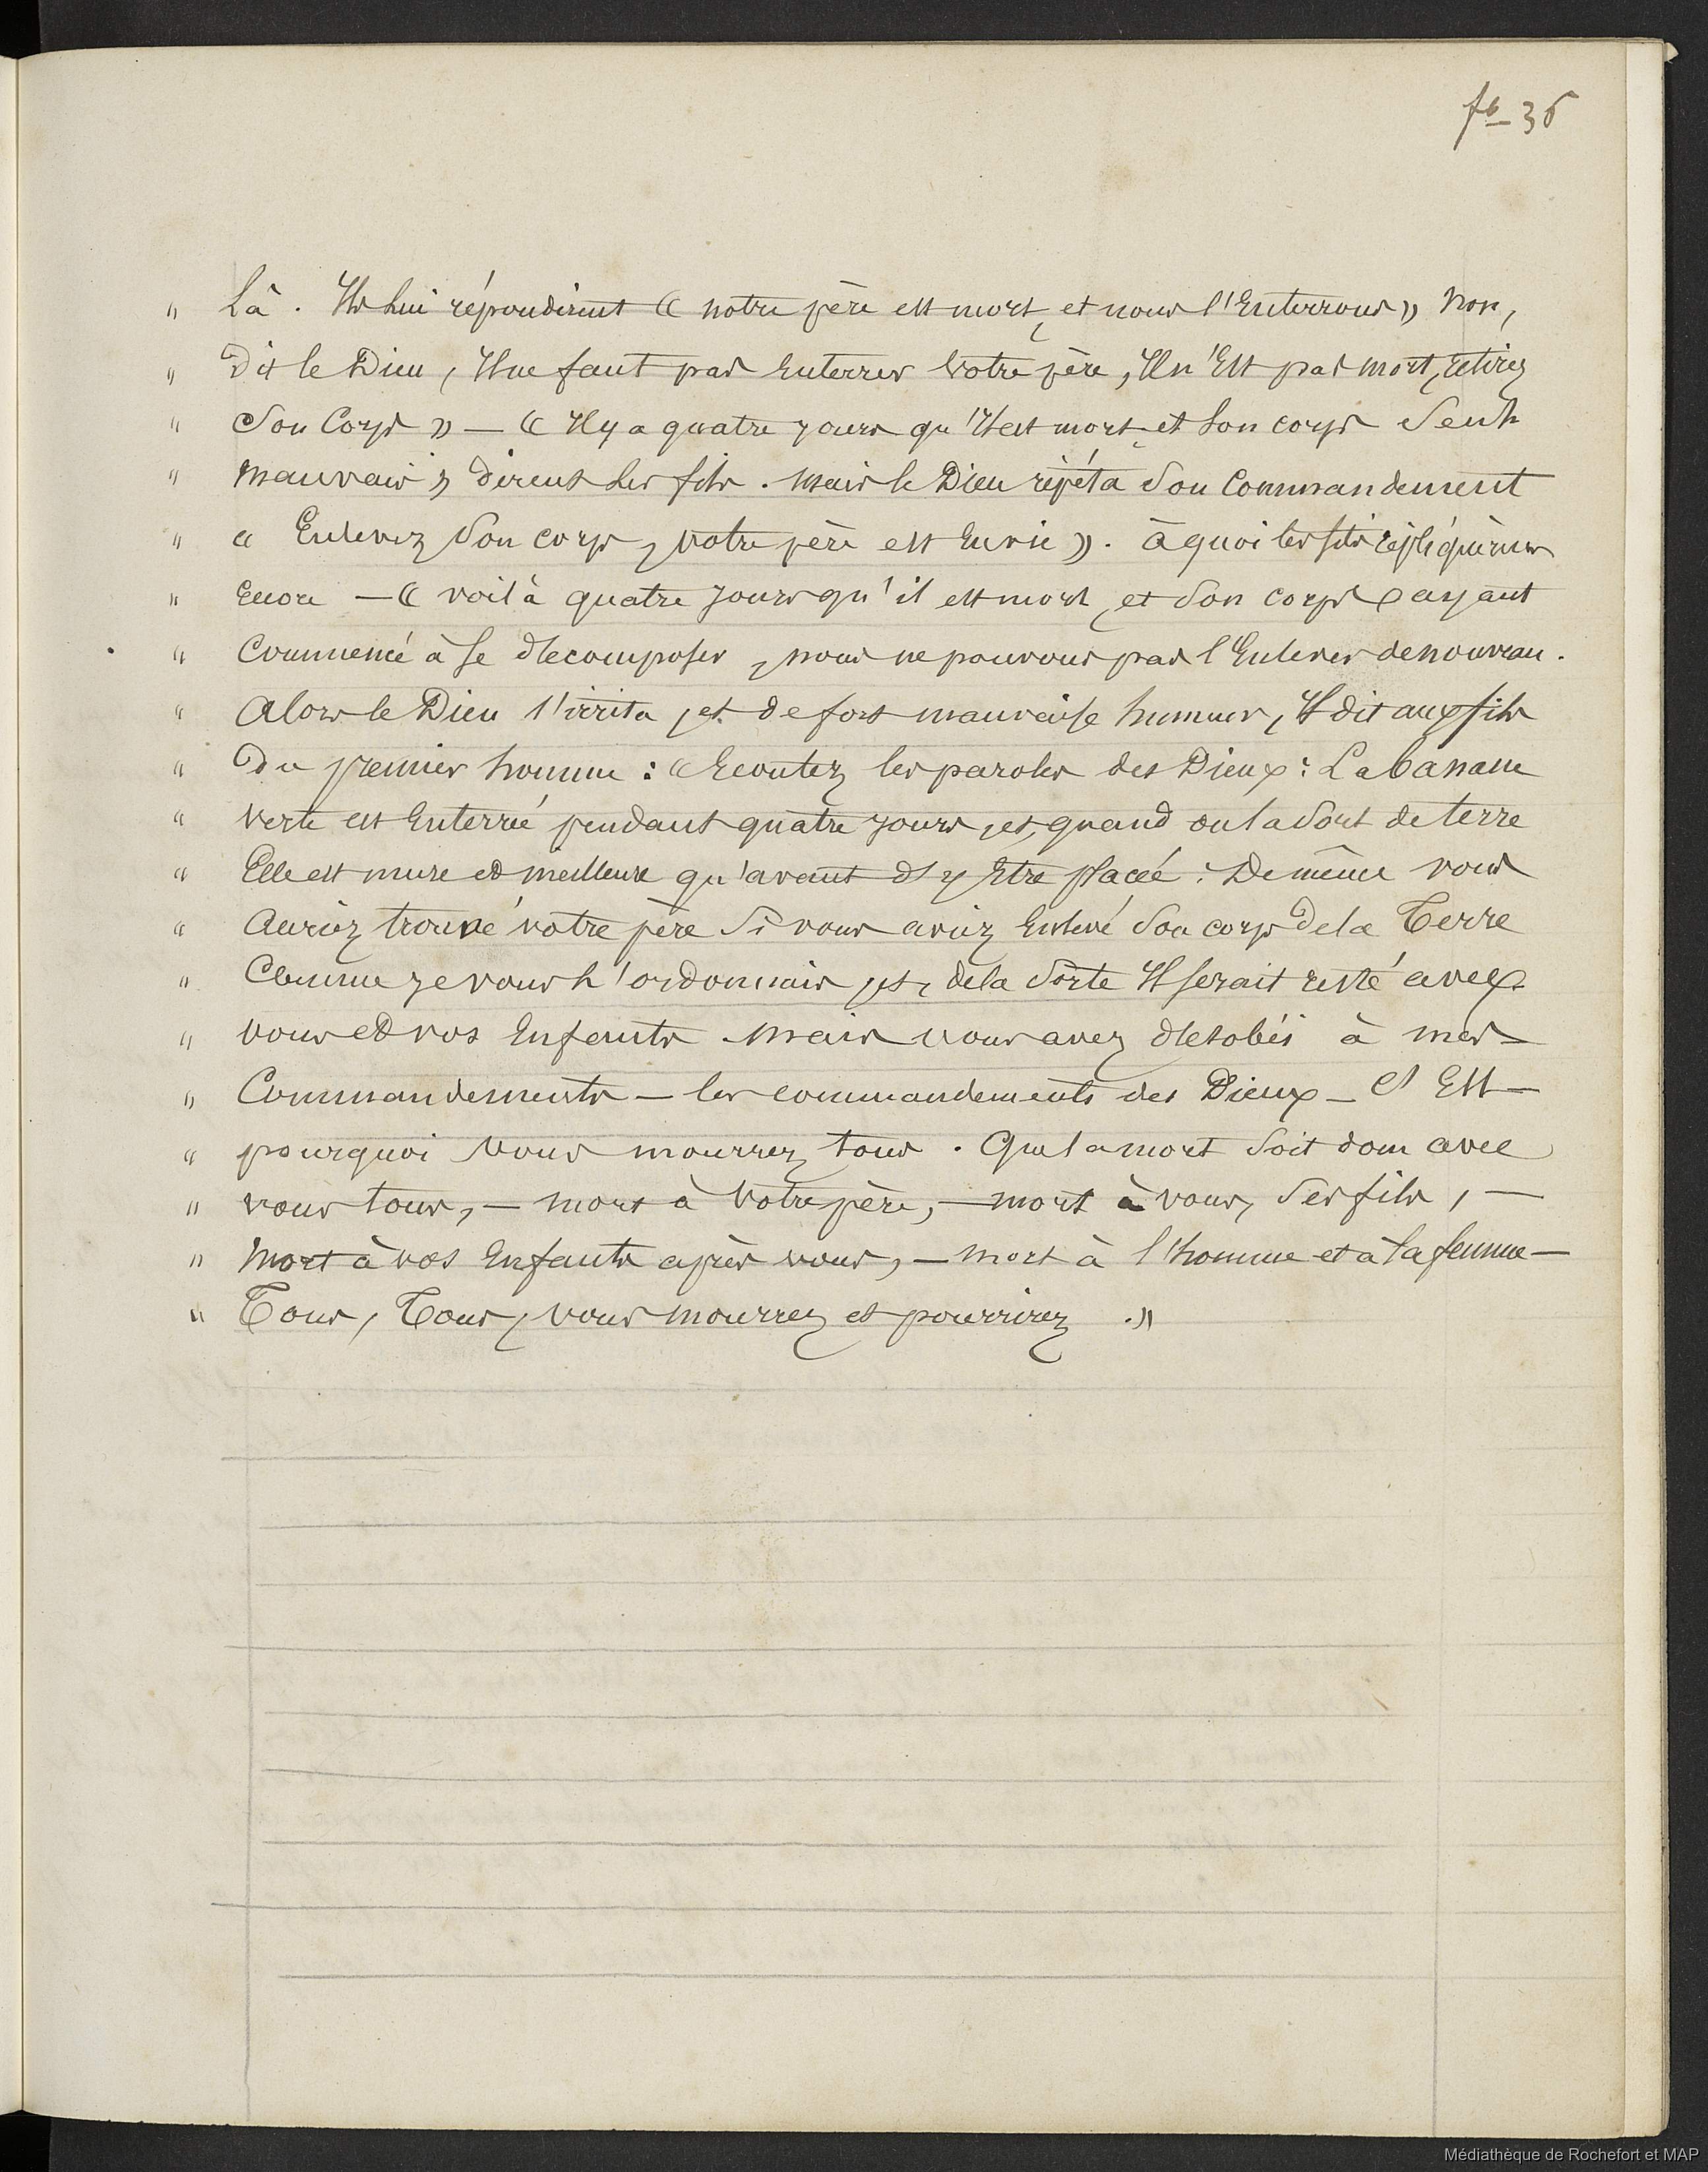 fo 36
" Là. Ils lui répondirent « notre père est mort, et nous l'Enterrons » Non,
" Dit le Dieu, Il ne faut pas Enterrer votre père, Il n'Est pas mort, retirez
" Son Corps » — « Il y a quatre jours qu'Il est mort et Son corps Sent
" mauvais » dirent Les fils. Mais le Dieu répéta Son Commandement
" « Enlevez Son corps, votre père est En vie ». à quoi les fils répliquèrent
" Encore — « voilà quatre Jours qu'il est mort, et Son corps ayant
" Commencé à Se décomposer, nous ne pouvons pas l'Enlever de nouveau.
" Alors le Dieu s'irrita, et de fort mauvaise humeur, Il dit aux fils
" Du premier homme : « Ecoutez les paroles des Dieux : La banane
" Verte est Enterrée pendant quatre jours, et, quand on la Sort de terre
" Elle est mure et meilleure qu'avant d'y Etre placée. De même vous
" Auriez trouvé votre père Si vous aviez Enlevé Son corps De la Terre
" Comme je vous l'ordonnais, et, de la Sorte Il serait resté avec
" vous et vos Enfants. Mais vous avez désobéi à mes
" Commandements — les commandements des Dieux — C'Est
" pourquoi vous mourrez tous. Que la mort Soit donc avec
" vous tous, — mort à Votre père, — mort à vous, Ses fils, —
" Mort à vos Enfants après vous, — mort à l'homme et à la femme —
" Tous, Tous, vous mourrez et pourrirez. »
Médiathèque de Rochefort et MAP